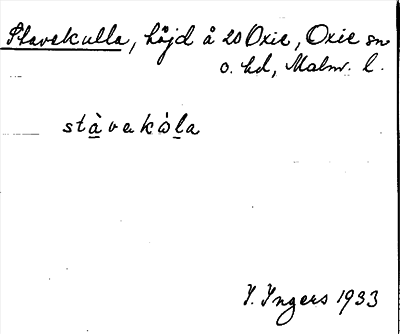 Stavekulla, höjd å 20 Oxie, Oxie sn
o. hd, Malm. l.
stàvekòla
I. Ingers 1933